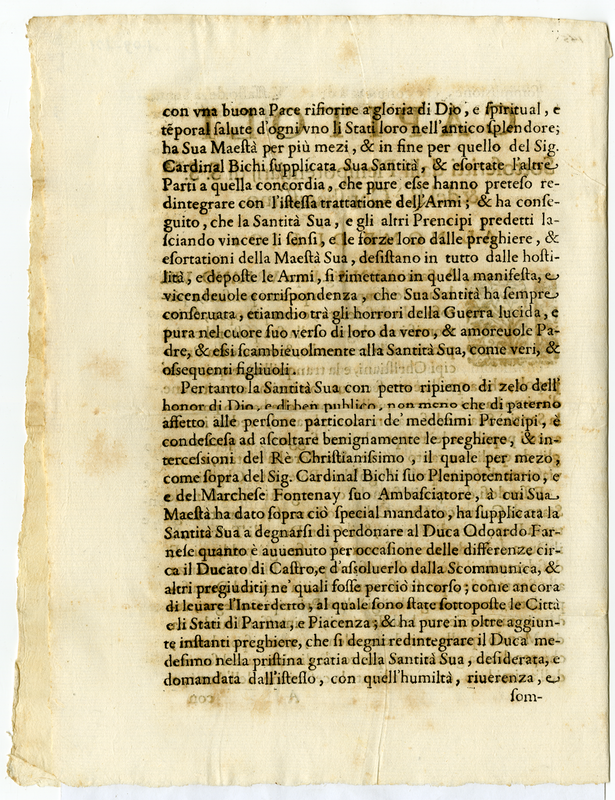 con vna buona Pace rifiorire a gloria di Dio, e spiritual, e
tẽporal salute d'ogni vno li Stati loro nell'antico splendore;
ha Sua Maestà per più mezi, & in fine per quello del Sig.
Cardinal Bichi supplicata Sua Santità, & esortate l'altre
Parti a quella concordia, che pure esse hanno preteso re-
dintegrare con l'istessa trattatione dell'Armi; & ha conse-
guito, che la Santità Sua, e gli altri Prencipi predetti la-
sciando vincere li sensi, e le forze loro dalle preghiere, &
esortationi della Maestà Sua, desistano in tutto dalle hosti-
lità, e deposte le Armi, si rimettano in quella manifesta, e
vicendeuole corrispondenza, che Sua Santità ha sempre
conseruata, etiamdio trà gli horrori della Guerra lucida, e
pura nel cuore suo verso di loro da vero, & amoreuole Pa-
dre, & essi scambieuolmente alla Santità Sua, come veri, &
ossequenti figliuoli.
Per tanto la Santità Sua con petto ripieno di zelo dell'
honor di Dio, e di ben publico, non meno che di paterno
affetto alle persone particolari de' medesimi Prencipi, è
condescesa ad ascoltare benignamente le preghiere, & in-
tercessioni del Rè Christianissimo, il quale per mezo,
come sopra del Sig. Cardinal Bichi suo Plenipotentiario, e
e del Marchese Fontenay suo Ambasciatore, à cui Sua
Maestà ha dato sopra ciò special mandato, ha supplicata la
Santità Sua a degnarsi di perdonare al Duca Odoardo Far-
nese quanto è auuenuto per occasione delle differenze cir-
ca il Ducato di Castro, e d'assoluerlo dalla Scommunica, &
altri pregiuditij ne' quali fosse perciò incorso; come ancora
di leuare l'Interdetto, al quale sono state sottoposte le Città
e li Stati di Parma, e Piacenza; & ha pure in oltre aggiun-
te instanti preghiere, che si degni redintegrare il Duca me-
desimo nella pristina gratia della Santità Sua, desiderata, e
domandata dall'istesso, con quell'humiltà, riuerenza, e
som-